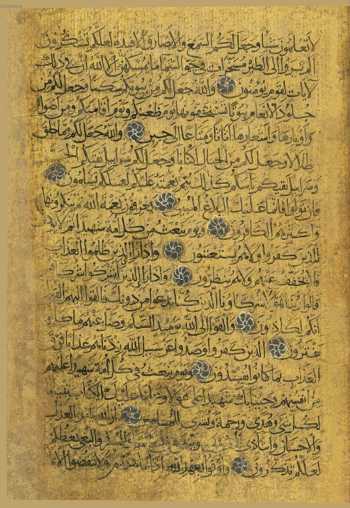 لا تعلمون شيئا وجعل لكم السمع والأبصار والأفئدة لعلكم تشكرون
ألم يروا إلى الطير مسخرات في جو السماء ما يمسكهن إلا الله إن في ذلك
لآيات لقوم يؤمنون والله جعل لكم من بيوتكم سكنا وجعل لكم من
جلود الأنعام بيوتا تستخفونها يوم ظعنكم ويوم إقامتكم ومن أصوافها
وأوبارها وأشعارها أثاثا ومتاعا إلى حين والله جعل لكم مما خلق
ظلالا وجعل لكم من الجبال أكنانا وجعل لكم سرابيل تقيكم الحر
وسرابيل تقيكم بأسكم كذلك يتم نعمته عليكم لعلكم تسلمون
فإن تولوا فإنما عليك البلاغ المبين يعرفون نعمة الله ثم ينكرونها
وأكثرهم الكافرون ويوم نبعث من كل أمة شهيدا ثم لا يؤذن
للذين كفروا ولا هم يستعتبون وإذا رأى الذين ظلموا العذاب
فلا يخفف عنهم ولا هم ينظرون وإذا رأى الذين أشركوا شركاءهم
قالوا ربنا هؤلاء شركاؤنا الذين كنا ندعو من دونك فألقوا إليهم القول
إنكم لكاذبون وألقوا إلى الله يومئذ السلم وضل عنهم ما كانوا
يفترون الذين كفروا وصدوا عن سبيل الله زدناهم عذابا فوق
العذاب بما كانوا يفسدون ويوم نبعث في كل أمة شهيدا عليهم
من أنفسهم وجئنا بك شهيدا على هؤلاء ونزلنا عليك الكتاب تبيانا
لكل شيء وهدى ورحمة وبشرى للمسلمين إن الله يأمر بالعدل
والإحسان وإيتاء ذي القربى وينهى عن الفحشاء والمنكر والبغي يعظكم
لعلكم تذكرون وأوفوا بعهد الله إذا عاهدتم ولا تنقضوا